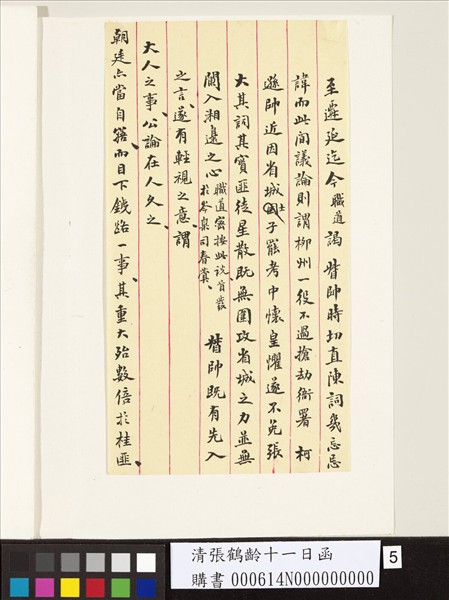 至遷延迄今職道謁 督帥時切直陳詞幾忘忌
諱而此間議論則謂柳州一役不過搶劫衙署 柯
遜帥近因省城士子罷考中懷皇懼遂不免張
大其詞其實匪徒星散既無圍攻省城之力並無
闌入湘邊之心職道密按此說皆發於岑臬司春蓂、 督帥既有先入
之言、遂有輕視之意、謂
大人之事、公論在人久之、
朝廷亦當自寤、而目下錢路一事、其重大殆數倍於桂匪、
清張鶴齡十一日函
購書 000614N000000000
5